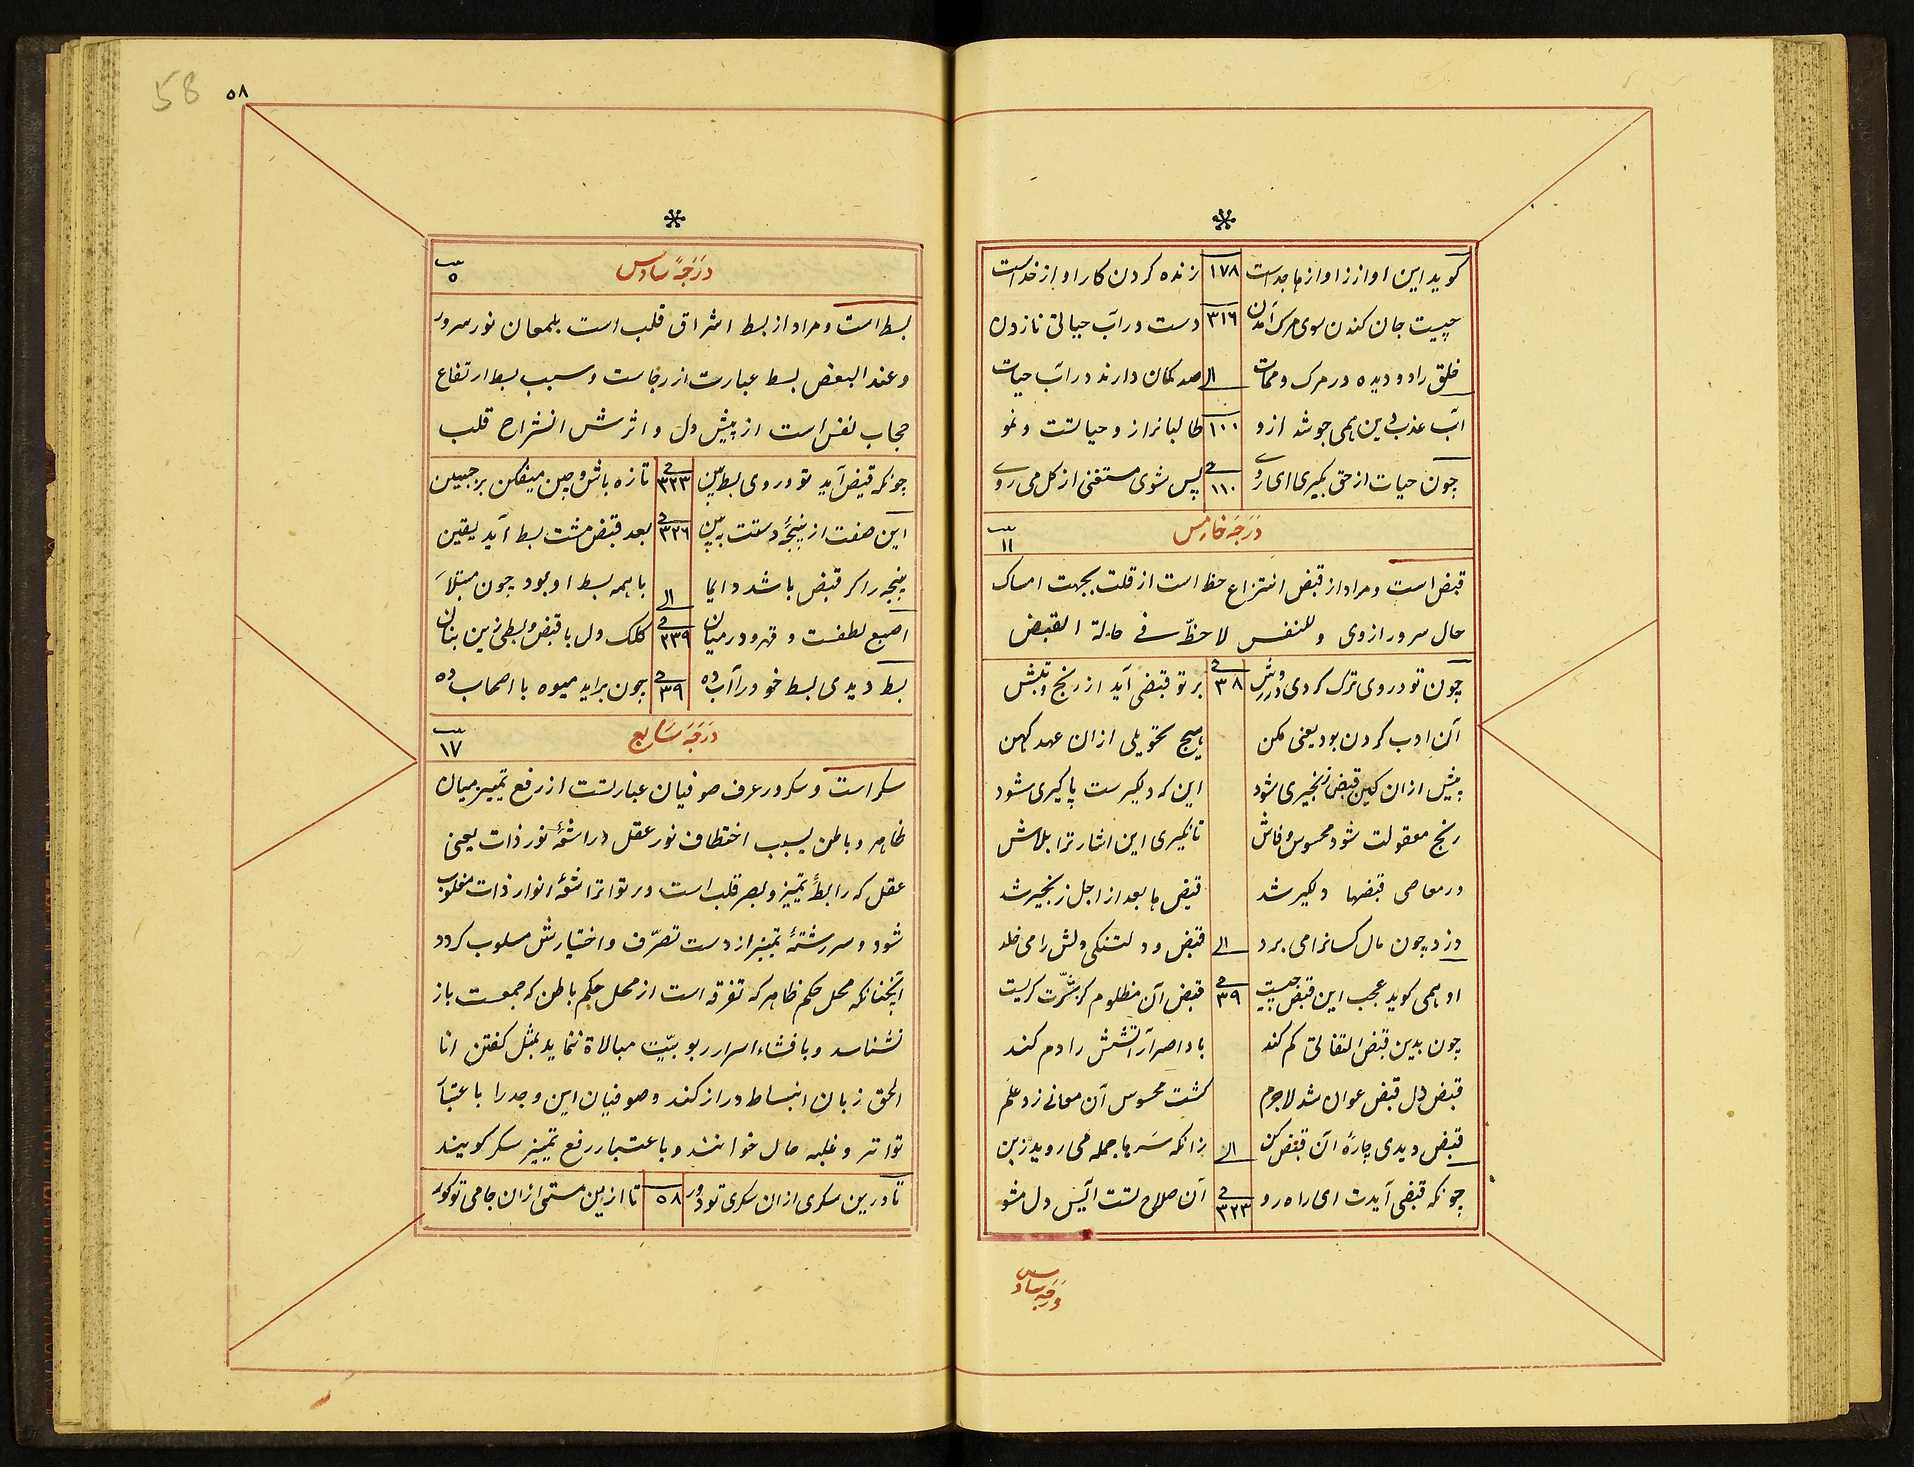 کوید این اواز زاواز ها جداست ١٧٨ زنده کردن کار اواز خداست
چیست جان کندن سوی مرک آمدن ٣١٦ دست در آب حیاتی نازدن
خلق را دو دیده در مرک و ممات الی صد کمان دارند در آب حیات
آب عذب دین همی جوشد ازو ١٠٠ طالبانرا زو حیاتست و نمو
چون حیات از حق بکیری ای روی ١١٠ پس شوی مستغنی از کل می روی
درجۀ خامس ١١
قبض است و مراد از قبض انتزاع حظ است از قلب بجهت امساک
حال سرور از وی و للنفس لا حظّ فی حالة القبض
چون تو دروی ترک کردی در روش ٣٨ بر تو قبضی آید از رنج و تبش
آن ادب کردن بود یعنی مکن هیچ تحویلی ازان عهد کهن
پیش ازان کین قبض زنجیری شود این که دلکیرست پاکیری شود
رنج معقولت شود محسوس و فاش تا نکیری این اشارترا بلاش
در معاصی قبضها دلکیر شد قبض ها بعد از اجل زنجیر شد
دزد چون مال کسانرا می برد الی قبض و دلتنکی دلش را می خلد
او همی کوید عجب این قبض چیست ٣٩ قبض آن مظلوم کز شرّت کریست
چون بدین قبض التفاتی کم کند باد اصرار آتشش را دم کند
قبض دل قبض عوان شد لاجرم کشت محسوس آن معانی زد علم
قبض دیدی چارۀ آن قبض کن الی زانکه سرها جمله می روید زبن
چونکه قبضی آیدت ای راه رو ٣٢٣ آن صلاح تست آیس دل مشو
درجۀ سادس
58 ٥٨
درجۀ سادس ٥
بسط است و مراد از بسط اشراق قلب است بلمعان نور سرور
و عند البعض بسط عبارت از رجاست و سبب بسط ارتفاع
حجاب نفس است از پیش دل و اثرش انشراح قلب
چونکه قبض آید تو در وی بسط بین ٣٢٣ تازه باش و چین میفکن بر جبین
این صفت از پنجۀ دستت ببین ٣٢٦ بعد قبض مشت بسط آید یقین
پنجه را کر قبض باشد دایما الی با همه بسط او بود چون مبتلا
اصبع لطفست و قهر و در میان ٢٣٩ کلک دل با قبض و بسطی زین بنان
بسط دیدی بسط خود را آب ده ٣٩ چون براید میوه با اصحاب ده
درجۀ سابع ١٧
سکر است و سکر در عرف صوفیان عبارتست از رفع تمییز میان
ظاهر و باطن بسبب اختطاف نور عقل در اشعۀ نور ذات یعنی
عقل که رابطۀ تمییز و بصر قلب است در تواتر اشعۀ انوار ذات مغلوب
شود و سر رشتۀ تمییز از دست تصرّف و اختیارش مسلوب کردد
آنچنانکه محل حکم ظاهر که تفرقه است از محل حکم باطن که جمعست باز
نشناسد و بافشاء اسرار ربوبیّت مبالاة ننماید بمثل کفتن انا
الحق زبان انبساط دراز کند و صوفیان این وجد را باعتبار
تواتر و غلبه حال خوانند و باعتبار رفع تمییز سکر کویند
تا درین سکری ازان سکری تو دور ٥٨ تا ازین مستی ازان جامی تو کور